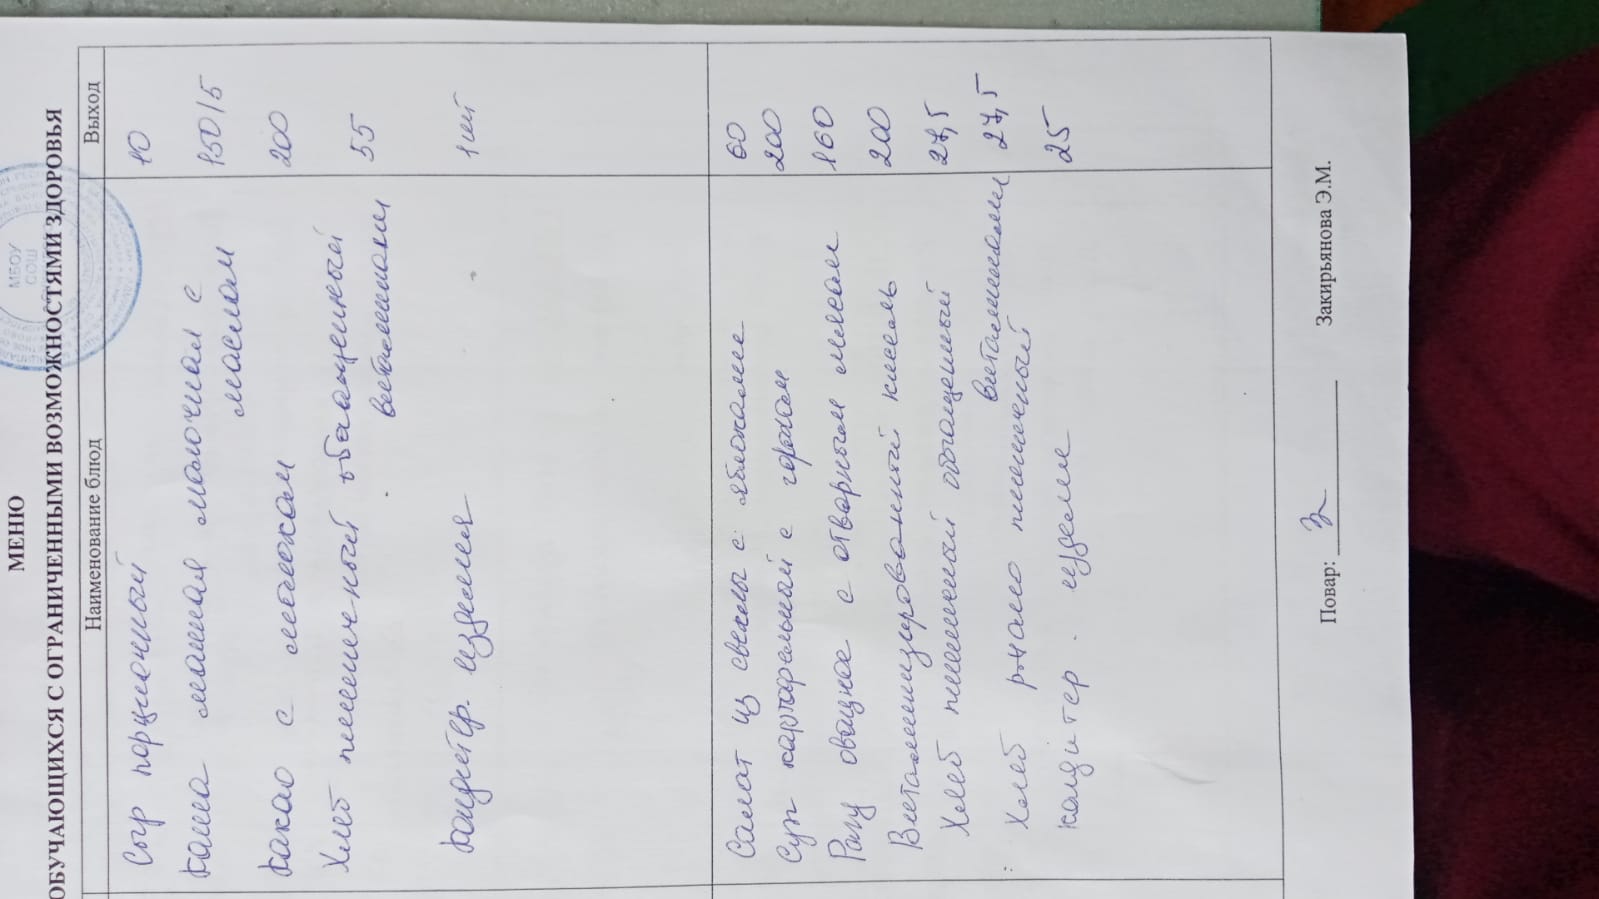 МЕНЮ
ОБУЧАЮЩИХСЯ С ОГРАНИЧЕННЫМИ ВОЗМОЖНОСТЯМИ ЗДОРОВЬЯ
МБОУ
СОШ
Наименование блюд Выход
Сыр порционный 10
Каша манная молочная с 150/5
маслом
Какао с молоком 200
Хлеб пшеничный обагащенный 55
витаминами
Кондитер. изделия 1 шт
Салат из свеклы с яблоками 60
Суп картофельный с горохом 200
Рагу овощное с отварным мясом 160
Витаминизированный кисель 200
Хлеб пшеничный обогащенный 27,5
витаминами
Хлеб ржано пшеничный 27,5
кондитер. изделие 25
Повар: Закирьянова Э.М.